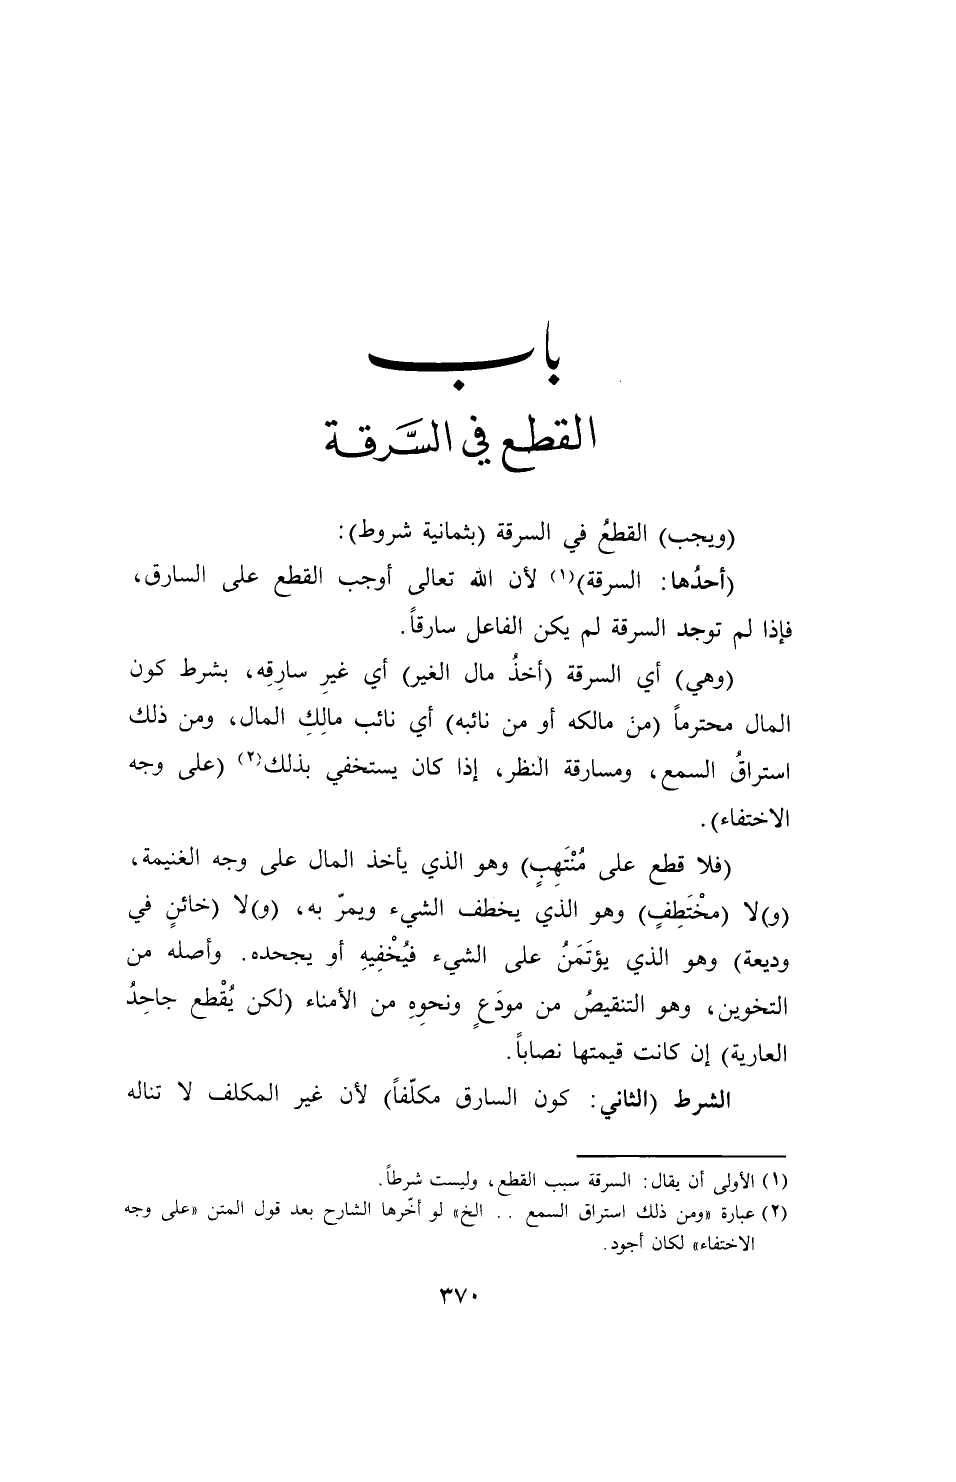 باب
القطع في السَّرقة
(ويجب) القطعُ في السرقة (بثمانية شروط):
(أحدُها: السرقة)(١) لأن الله تعالى أوجب القطع على السارق،
فإذا لم توجد السرقة لم يكن الفاعل سارقاً.
(وهي) أي السرقة (أخذُ مال الغير) أي غيرِ سارِقِه، بشرط كون
المال محترماً (من مالكه أو من نائبه) أي نائب مالِكِ المال، ومن ذلك
استراقُ السمع، ومسارقة النظر، إذا كان يستخفي بذلك(٢) (على وجه
الاختفاء).
(فلا قطع على مُنْتَهِبٍ) وهو الذي يأخذ المال على وجه الغنيمة،
(و)لا (مخْتَطِفٍ) وهو الذي يخطف الشيء ويمرّ به، (و)لا (خائنٍ في
وديعة) وهو الذي يؤتَمَنُ على الشيء فيُخْفِيهِ أو يجحده. وأصله من
التخوين، وهو التنقيصُ من مودَعٍ ونحوِهِ من الأمناء (لكن يُقْطع جاحِدُ
العارية) إن كانت قيمتها نصاباً.
الشرط (الثاني: كون السارق مكلّفاً) لأن غير المكلف لا تناله
(١) الأولى أن يقال: السرقة سبب القطع، وليست شرطاً.
(٢) عبارة «ومن ذلك استراق السمع .. الخ» لو أخّرها الشارح بعد قول المتن «على وجه
الاختفاء» لكان أجود.
٣٧٠